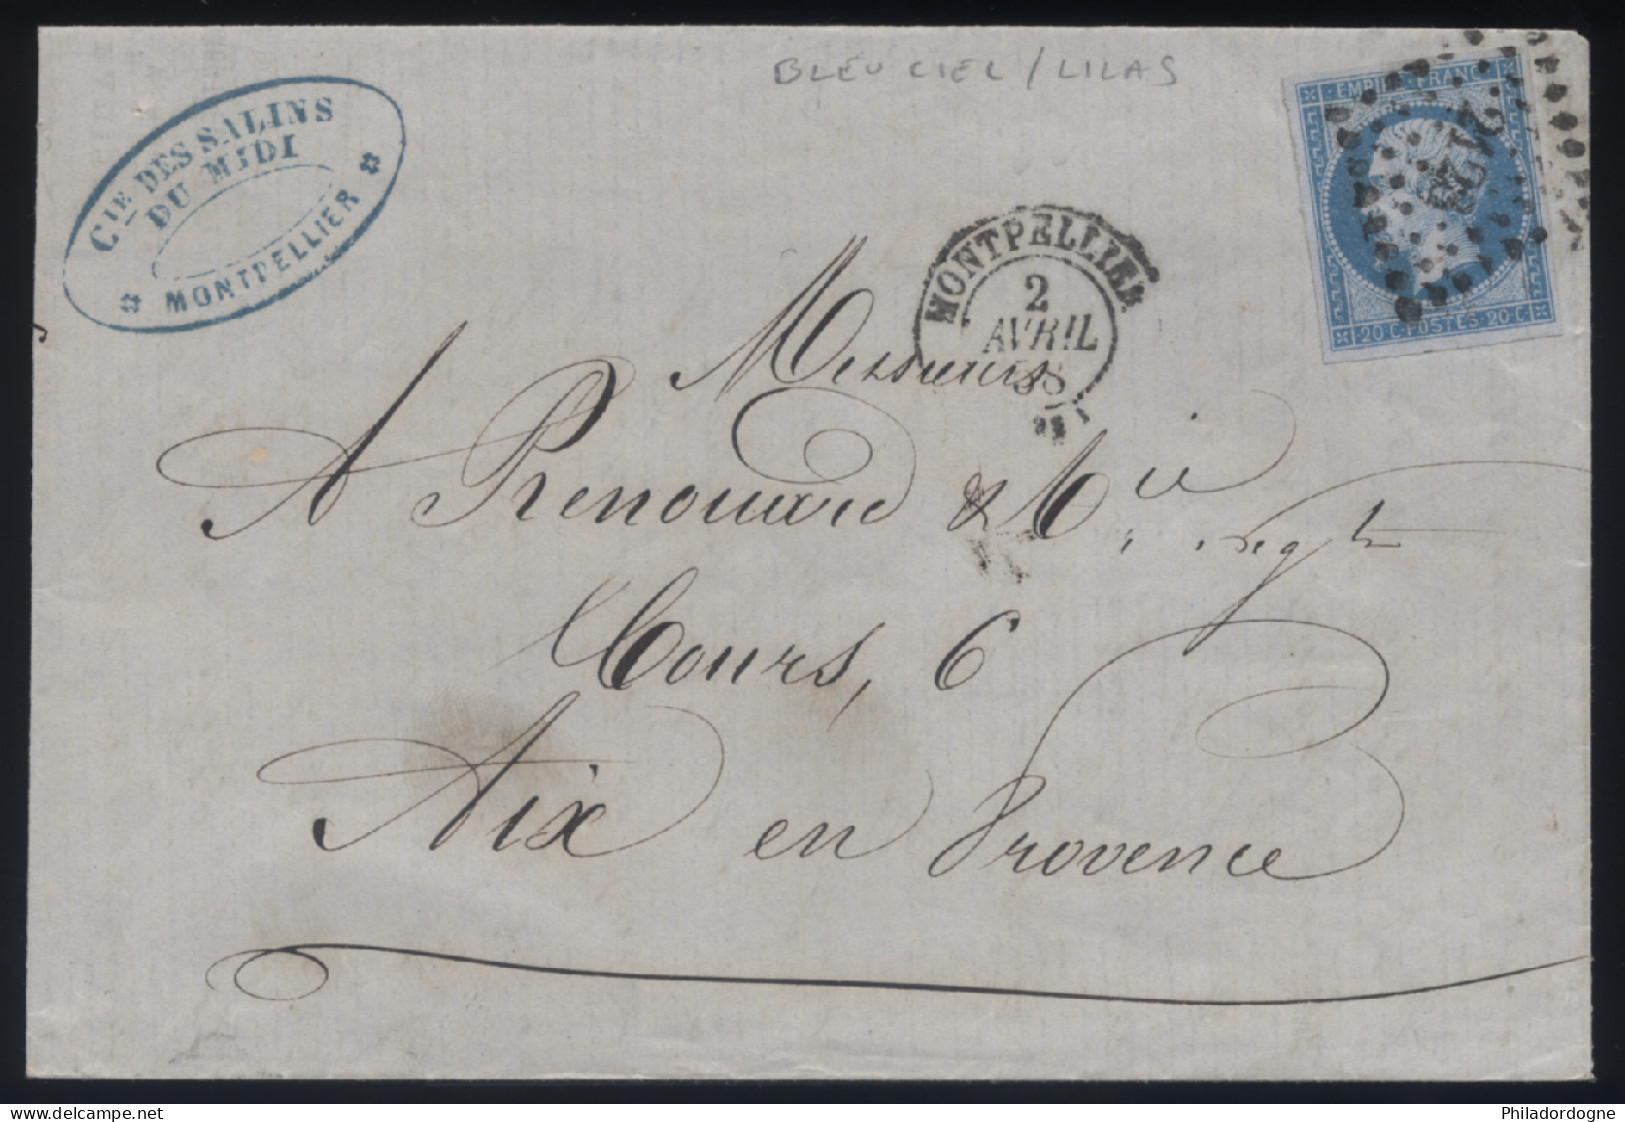 BLEU CIEL / LILAS
Cie DES SALINS
DU MIDI
MONTPELLIER
EMPIRE FRANC
20 C. POSTES 20 C.
MONTPELLIER
2
AVRIL
58
Messieurs
A Renouard & Cie
Cours, 6
Aix en Provence
delcampe.net
Philadordogne